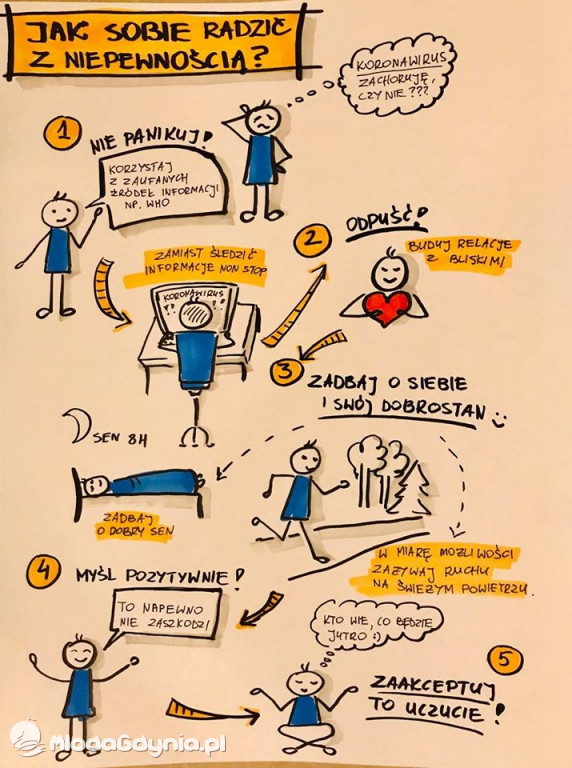 JAK SOBIE RADZIĆ
Z NIEPEWNOŚCIĄ?
KORONAWIRUS
ZACHORUJĘ,
CZY NIE???
1
NIE PANIKUJ!
KORZYSTAJ
Z ZAUFANYCH
ŹRÓDEŁ INFORMACJI
NP. WHO
ZAMIAST ŚLEDZIĆ
INFORMACJE NON STOP
KORONAWIRUS
?! !?
2
ODPUŚĆ!
BUDUJ RELACJE
Z BLISKIMI
3
ZADBAJ O SIEBIE
I SWÓJ DOBROSTAN :)
SEN 8H
ZADBAJ
O DOBRY SEN
W MIARĘ MOŻLIWOŚCI
ZAŻYWAJ RUCHU
NA ŚWIEŻYM POWIETRZU.
4
MYŚL POZYTYWNIE!
TO NAPEWNO
NIE ZASZKODZI
KTO WIE, CO BĘDZIE
JUTRO :)
5
ZAAKCEPTUJ
TO UCZUCIE!
MlodaGdynia.pl